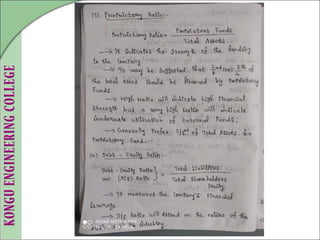 KONGU ENGINEERING COLLEGE
(9) Proprietary Ratio:-
Proprietary Ratio = Proprietors Funds
Total Assets
→ It indicates the strength of the funding
to the company.
→ It may be suggested that 2/3rd of
the total assets should be financed by proprietary
Funds.
→ High Ratio will indicate high financial
strength but a very high ratio will indicate
inadequate utilisation of External Funds.
→ Generally Prefer of Total Assets for
Proprietary Fund.
Debt - Equity Ratio:-
Debt - Equity Ratio = Total Liabilities
(or) (D/E) Ratio Total Shareholders
Equity
→ It measures the Company's Financial
Leverage.
→ D/E Ratio will depend on the nature of the
industry.